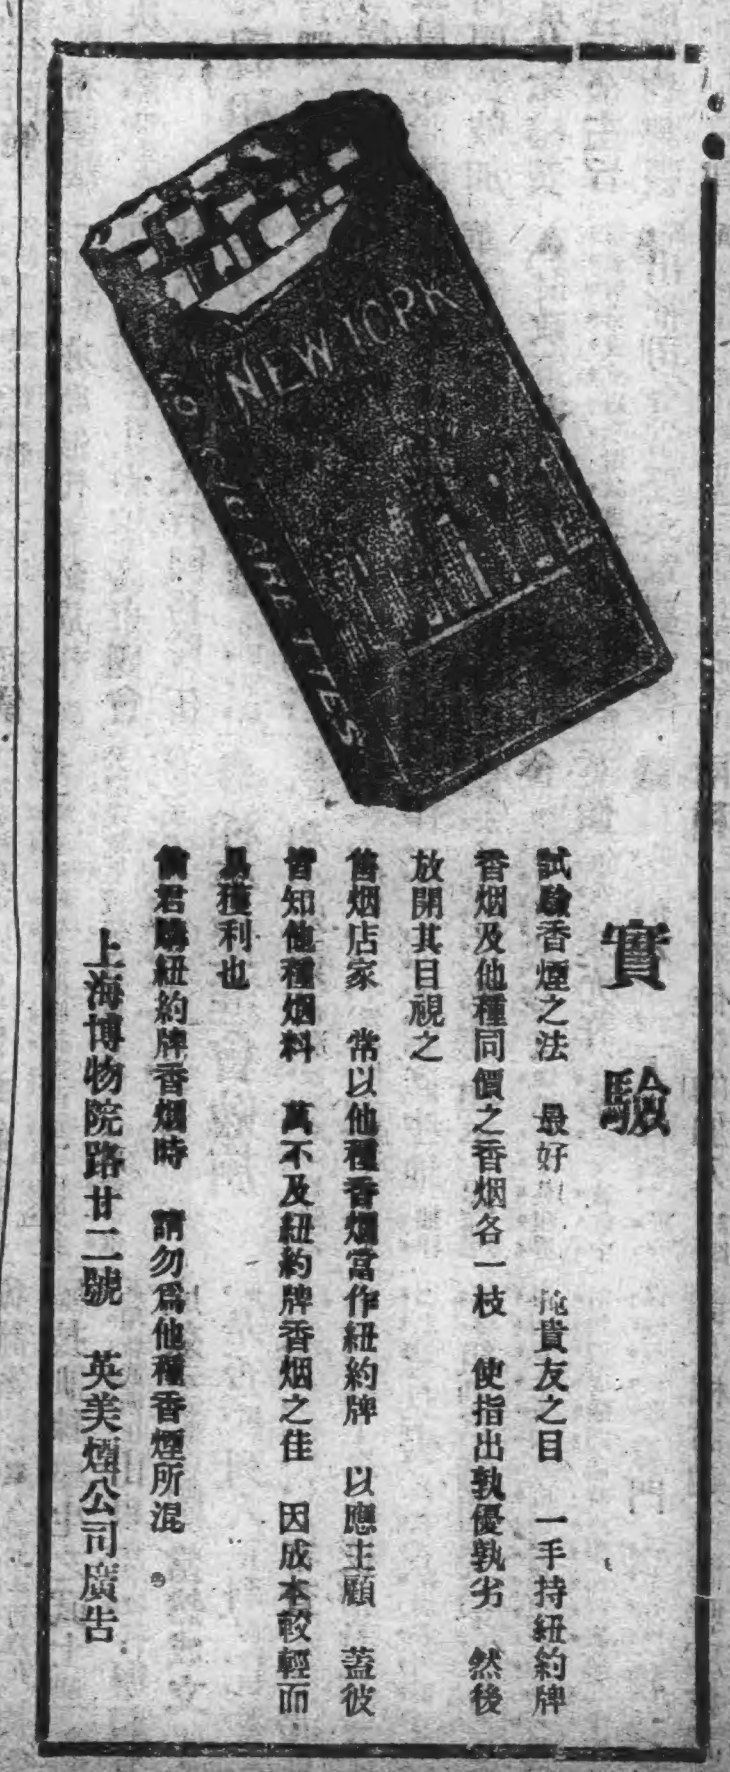 NEW YORK
10 CIGARETTES
實驗
試驗香煙之法 最好 掩貴友之目 一手持紐約牌
香烟及他種同價之香烟各一枝 使指出孰優孰劣 然後
放開其目視之
售烟店家 常以他種香烟當作紐約牌 以應主顧 蓋彼
皆知他種烟料 萬不及紐約牌香烟之佳 因成本較輕而
易獲利也
倘君購紐約牌香烟時 請勿爲他種香煙所混
上海博物院路廿二號 英美煙公司廣告